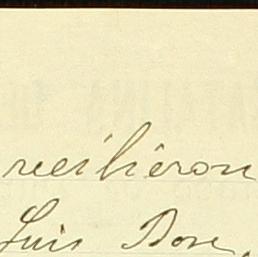 recibieron
Luis Bose,